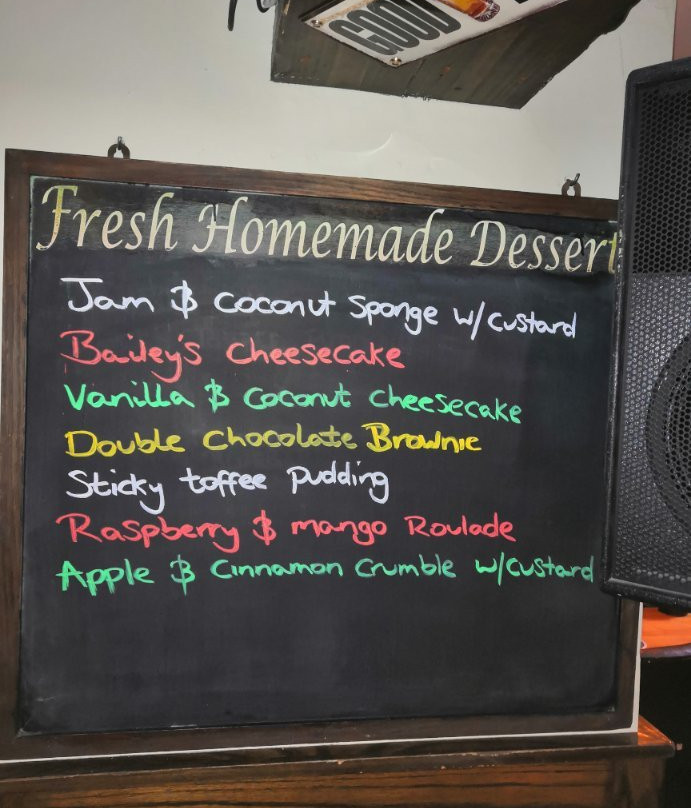 GOOD
Fresh Homemade Dessert
Jam & Coconut Sponge w/custard
Bailey's cheesecake
Vanilla & Coconut cheesecake
Double chocolate Brownie
Sticky toffee pudding
Raspberry & mango Roulade
Apple & Cinnamon Crumble w/custard